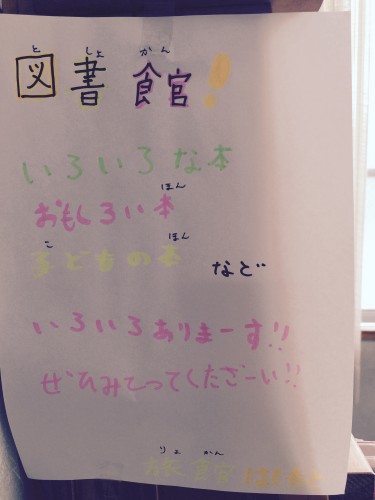 としょかん
図書館!
いろいろな本
ほん
おもしろい本
こ ほん
子どもの本 など
いろいろありまーす!!
ぜひみてってくださーい!!
りょ かん